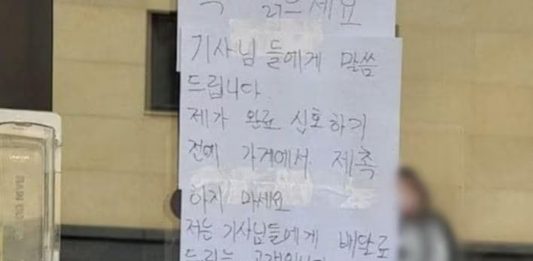 꼭 읽으세요
기사님들에게 말씀
드립니다
제가 완료 신호하기
전에 가게에서 제촉
하지 마세요
저는 기사님들에게 배달료
드리는 고객입니다